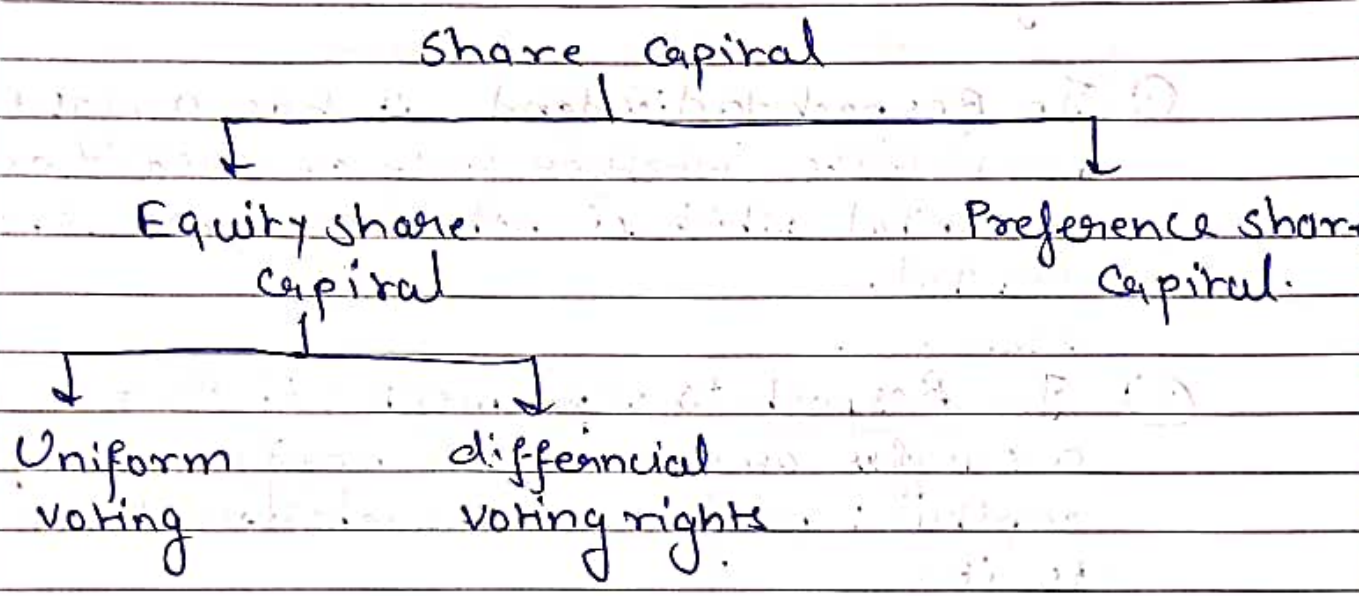 Share Capital
Equity share
Capital
Preference shar
Capital.
Uniform
voting
differncial
voting rights.